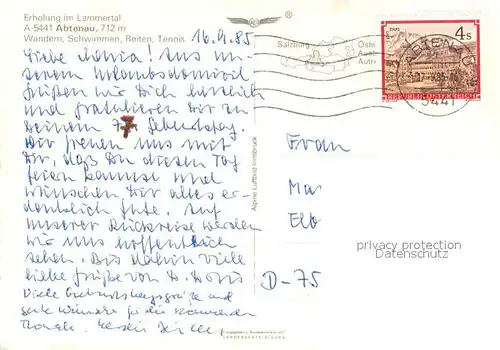 Erholung im Lammertal
A-5441 Abtenau, 712 m
Wandern, Schwimmen, Reiten, Tennis
16.9.85
Liebe Maria! Aus un-
serem Urlaubsdomizil
grüßen wir Dich herzlich
und gratulieren Dir zu
Deinem 7 Geburtstag.
Wir freuen uns mit
Dir, daß Du diesen Tag
feiern kannst und
wünschen Dir alles er-
denklich Gute. Auf
unserer Rückreise werden
wir uns hoffentlich
sehen. Bis dahin viele
liebe Grüße von Doris
Viele Geburtstagsgrüße und
gute Wünsche für die kommenden
®
Salzburg
Öste
Aust
Autri
ABTENAU
5441
4 s
REPUBLIK ÖSTERREICH
Alpine Luftbild Innsbruck
Frau
Ma
Elb
D-75
privacy protection
Datenschutz